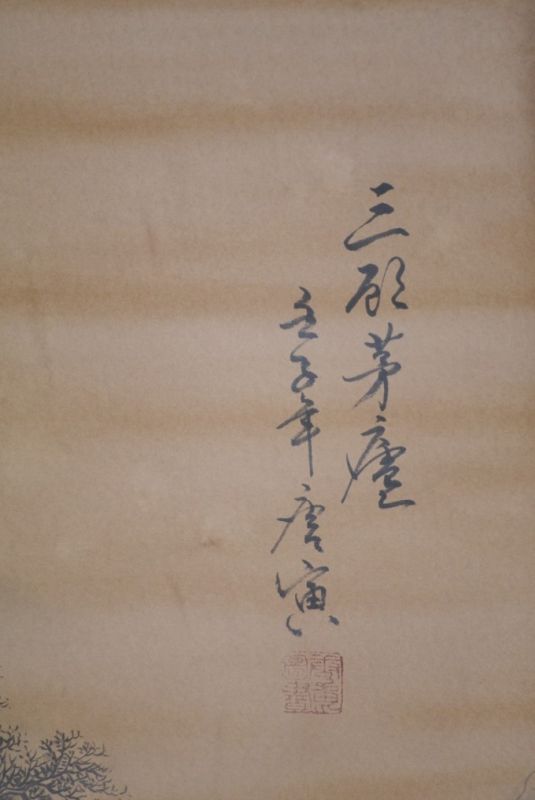 三顾茅廬
壬子年唐寅